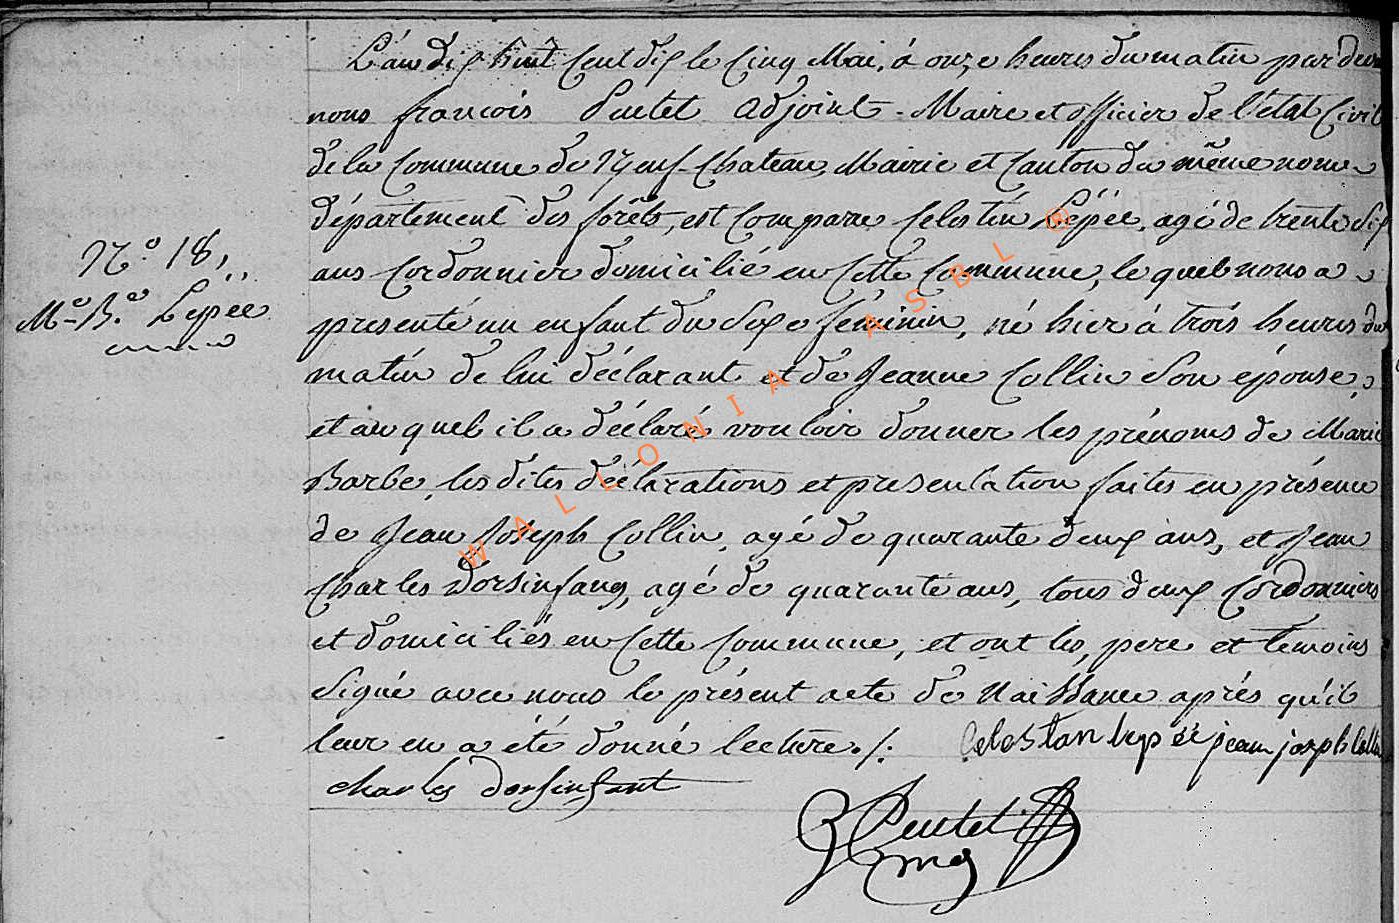 L'an dix huit cent dix le cinq Mai, à onze heures du matin par devant
nous françois Pentet adjoint-Maire et officier de l'état Civil
de la Commune de Neuf-Chateau, Mairie et Canton du même nom
département des forêts, est comparu Celestin Lépée, agé de trente six
ans Cordonnier domicilié en Cette Commune, lequel nous a
presenté un enfant du sexe féminin, né hier à trois heures du
matin de lui déclarant et de Jeanne Collin son épouse,
et auquel il a déclaré vouloir donner les prénoms de Marie
Barbe, les dites déclarations et présentation faites en présence
de Jean Joseph Collin, agé de quarante deux ans, et Jean
Charles Dorsinfang, agé de quarante ans, tous deux Cordonniers
et domiciliés en Cette Commune, et ont les pere et temoins
signé avec nous le présent acte de Naissance après qu'il
leur en a été donné lecture./.
Celestan lepéé jean joseph Collin
charles dorsinfant
Pentet
N.° 18,,
M.e B.e Lépée
WALLONIA ASBL ®